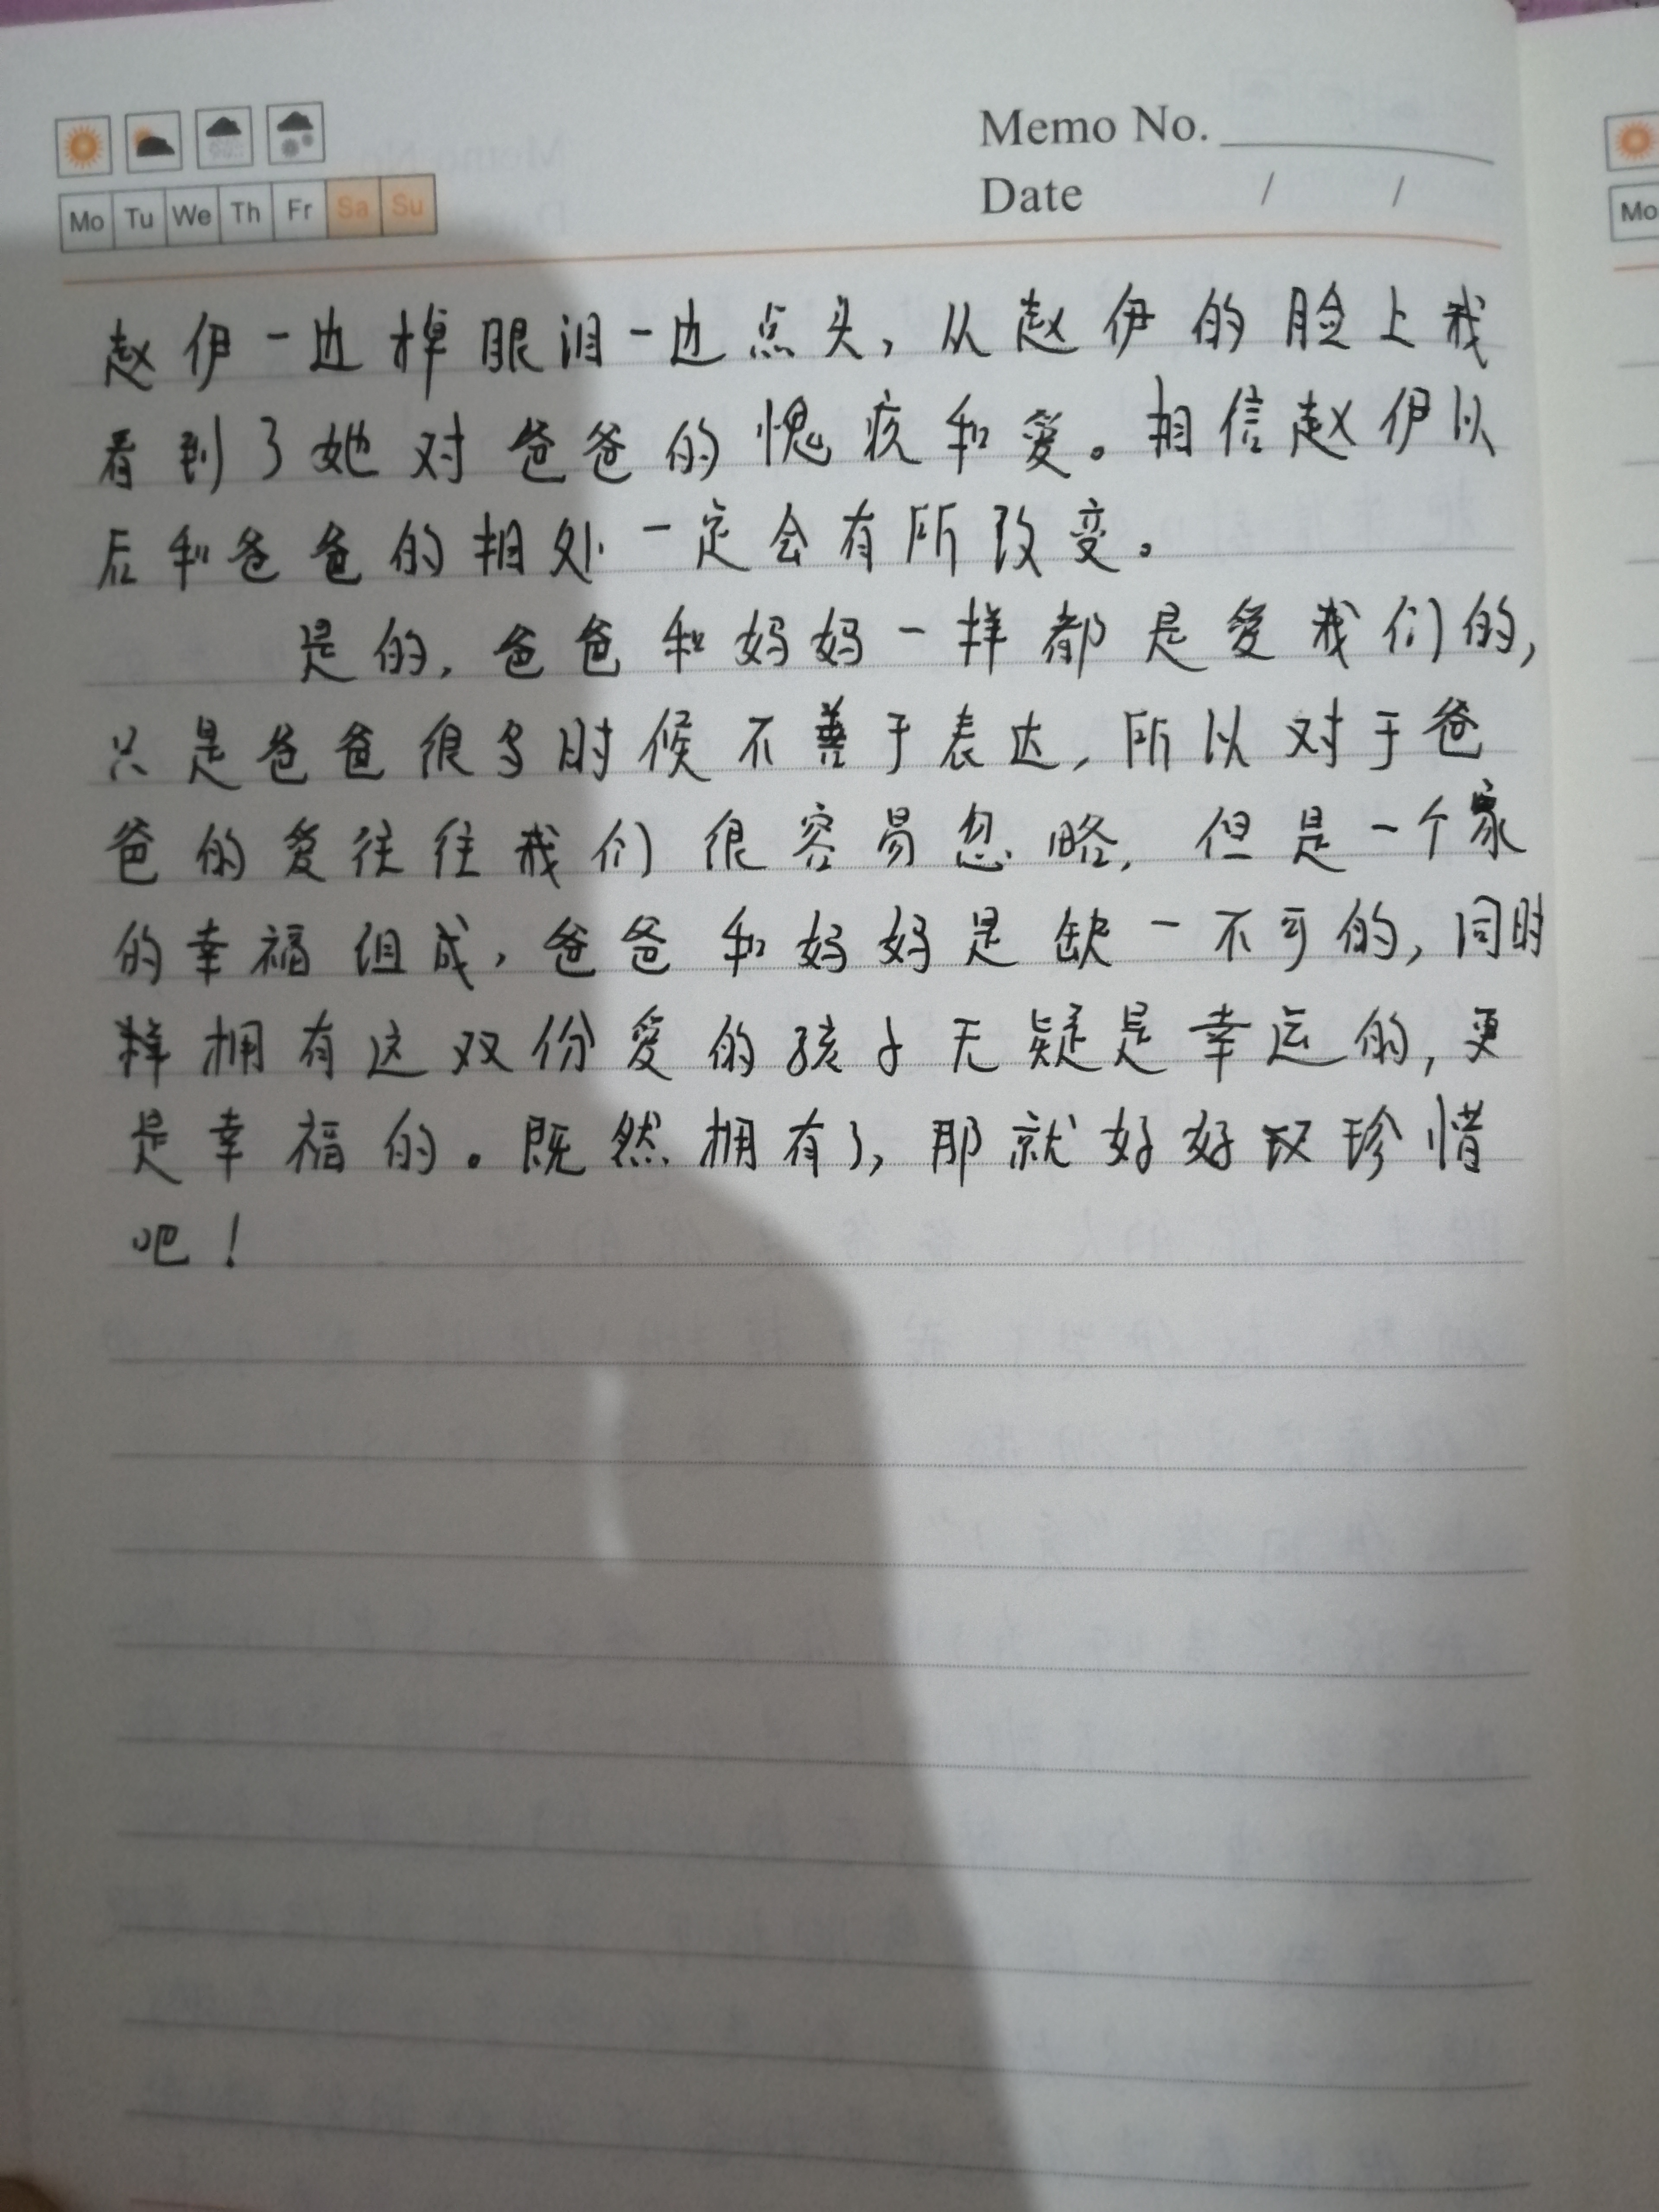 Memo No.
Mo Tu We Th Fr Sa Su
Date / /
Mo
赵伊一边掉眼泪一边点头，从赵伊的脸上我
看到了她对爸爸的愧疚和爱。相信赵伊以
后和爸爸的相处一定会有所改变。
是的，爸爸和妈妈一样都是爱我们的，
只是爸爸很多时候不善于表达，所以对于爸
爸的爱往往我们很容易忽略，但是一个家
的幸福组成，爸爸和妈妈是缺一不可的，同时
样拥有这双份爱的孩子无疑是幸运的，更
是幸福的。既然拥有了，那就好好珍惜
吧！